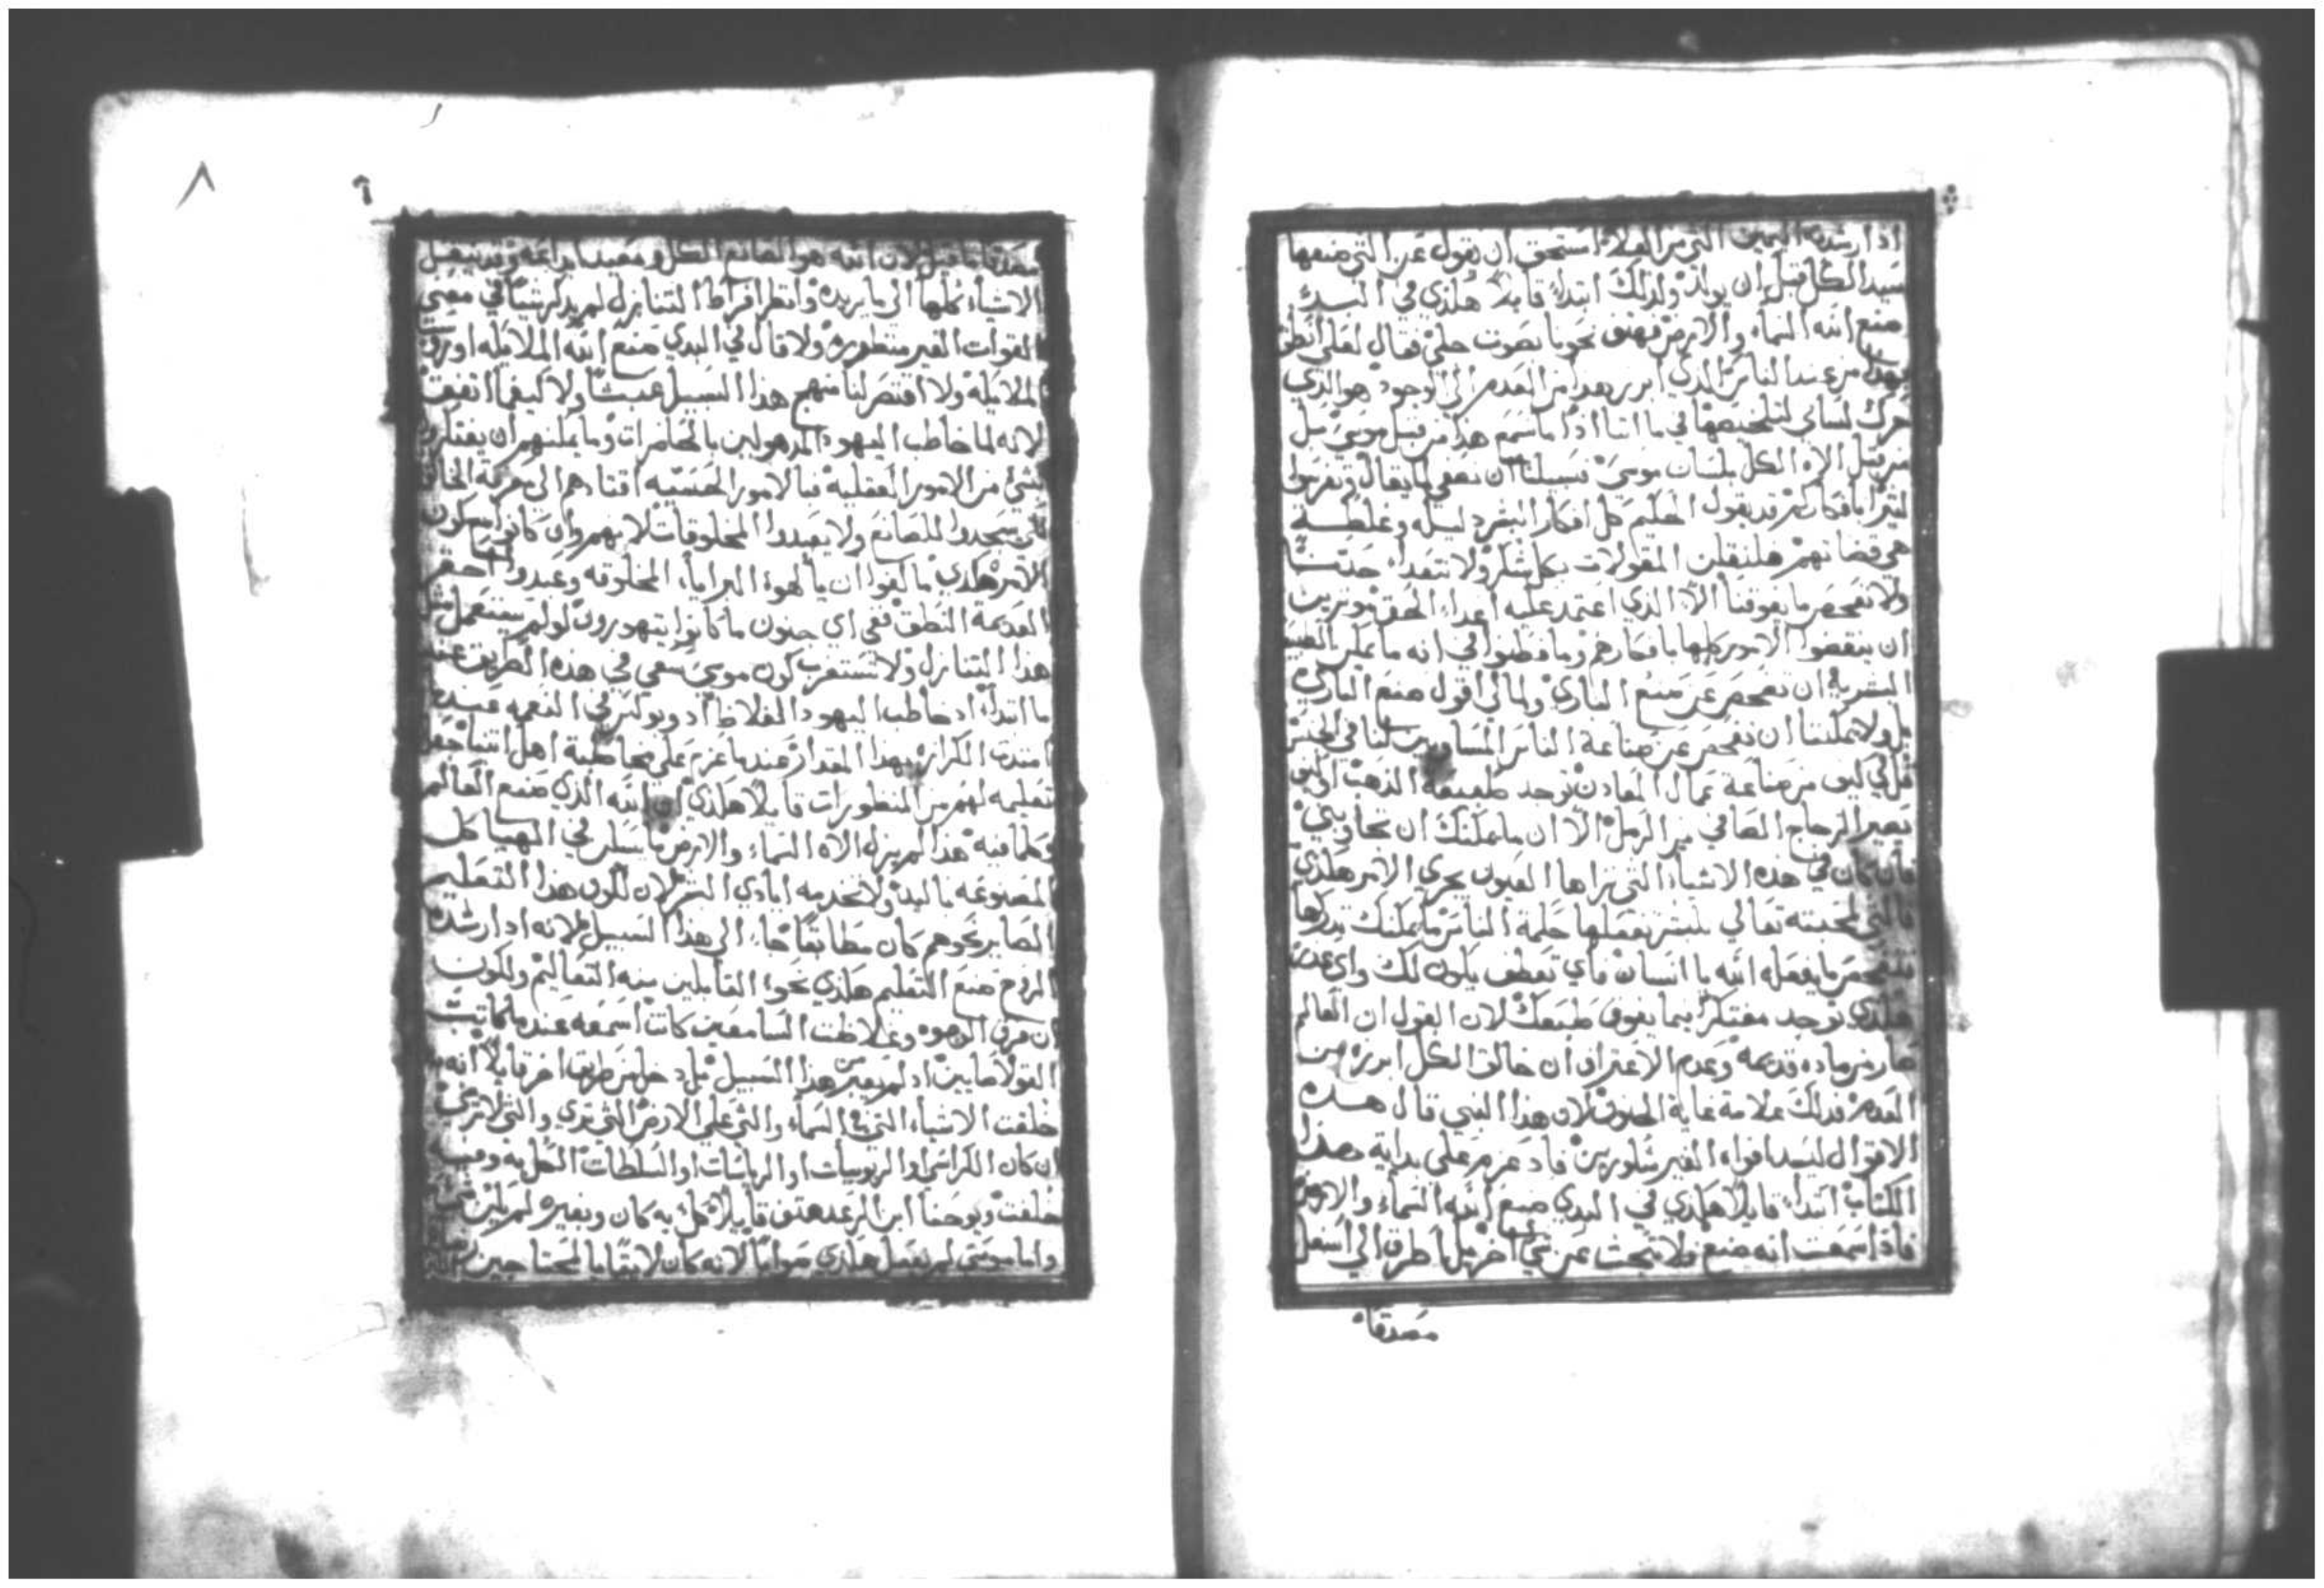 اذا ارشدته اليمين التي من العلاء استحق ان يقول عن التي صنعها
سيد الكل قبل ان يولد ولذلك ابتداء قايلا هكذي في البدء
صنع الله السماء والارض فهتف نحونا بصوت جلي فقال لعلي انطق
بهذا من عند الناس الذي ابرز هذا من العدم الى الوجود هو الذي
حرك لساني لتلخيصها في ما اننا اذا ما نسمع هذا من قبل موسى بل
من قبل الاه الكل بلسان موسى فسبيلنا ان نصغي لما يقال ونفر
لان قد يقول الحكيم كل افكار البشر ذليله وغلطة
هي قضاتهم فلنقبلن المقولات بكل شكر ولا نتعدا
ولا نفحص ما يفوقنا الا الذي اعتمد عليه اعداء الحق مريدين
ان ينقضوا الامور كلها بافكارهم وما فطنوا في انه ما يمكن
البشرية ان تفحص عن صنع الباري ولما لي اقول صنع الباري
بل ولا يمكننا ان نفحص عن صناعة الناس المساويين لنا في الجنس
قل لي كيف من صناعة عمال المعادن توجد طبيعة الذهب او كيف
يصير الزجاج الصافي من الرمل الا ان ما يمكنك ان تجاوبني
فان كان في هذه الاشياء التي تراها العيون يجري الامر هكذي
فالتي لمحبته تعالي للبشر تفعلها حكمة الناس ما يمكنك تدركها
تفحص ما يفعله الله يا انسان فاي تعطف يكون لك واي عذر
هكذي توجد مفتكرا بما يفوق طبعك لان القول ان العالم
صار من ماده قديمه وعدم الاعتراف ان خالق الكل ابرزه من
العدم فذلك علامة غاية الجنون لان هذا النبي قال هذه
الاقوال ليسد افواه الغير شكورين فاذ عزم على بداية هذا
الكتاب ابتداء قايلا هكذي في البدي صنع الله السماء والارض
فاذا سمعت انه صنع فلا تبحث عن شي اخر بل اطرق الى اسفل
مصدقا
٨
مصدقا ما قيل لان الله هو الصانع الكل
الاشياء كلها الى ما يريده وانظر افراط التنازل لم يذكر شيا في معنى
القوات الغير منظوره ولا قال في البدي صنع الله الملايكه او روسا
الملايكه ولا اقتصر لنا منهج هذا السبيل عبثا ولا كيفما اتفق
لانه لما خاطب اليهود المذهولين بالحاضرات وما يمكنهم ان يفتكروا
بشي من الامور العقليه فبالامور الحسيه اقتادهم الى معرفة الخالق
كي يسجدوا للصانع ولا يعبدوا المخلوقات لانهم وان كانوا يسمعون
الامر هكذي ما كفوا ان يالهوا البرايا المخلوقه وعبدوا احقر
العديمة النطق ففي اي جنون ما كانوا يتهورون لو لم يستعمل مثل
هذا التنازل ولا تستغرب كون موسى سعي في هذه الطريق عند
ما ابتداء اذ خاطب اليهود الغلاظ اذ وبولس في النعمه عند
امتدت الكرازه بهذا المقدار عندما عزم على مخاطبة اهل اثينا جعل
تعليمه لهم من المنظورات قايلا هكذي ان الله الذي صنع العالم
وكلما فيه هذا لم يزل الاه السماء والارض ما يسكن في الهياكل
المصنوعه باليد ولا تخدمه ايادي البشر لان لكون هذا التعليم
الصاير نحوهم كان مطابقا جاء الى هذا السبيل لانه اذ ارشده
الروح صنع التعليم هكذي نحو القابلين منه التعاليم ولكون
ان فرق الوجوه وغلاظة السامعين كانت اسمعه عندما كاتب
القولاصايين اذ لم يعبر من هذا السبيل بل دخل من طريق اخر قايلا انه به
خلقت الاشياء التي في السماء والتي على الارض التي ترى والتي لا ترى
ان كان الكراسي او الربوبيات او الرياسات او السلطات الكل به وفيه
خلقت ويوحنا ابن الرعد هتف قايلا كل به كان وبغيره لم يكن شي
واما موسى لم يفعل هكذي صوابا لانه كان لايقا بالمحتاجين